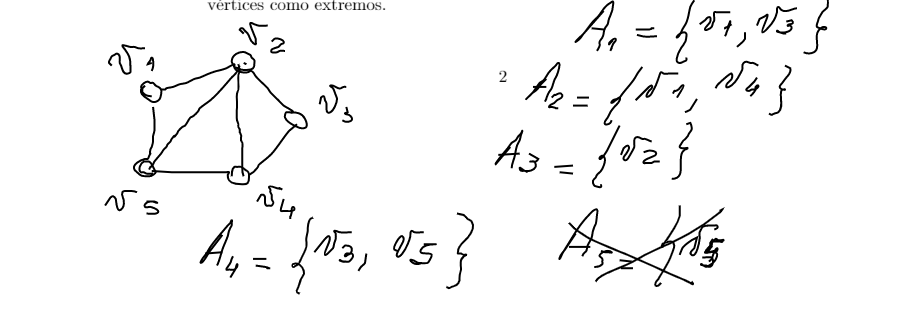 vértices como extremos.
v2
v1
v3
v5
v4
A1 = {v1, v3}
2
A2 = {v1, v4}
A3 = {v2}
A4 = {v3, v5}
A5 = {v5